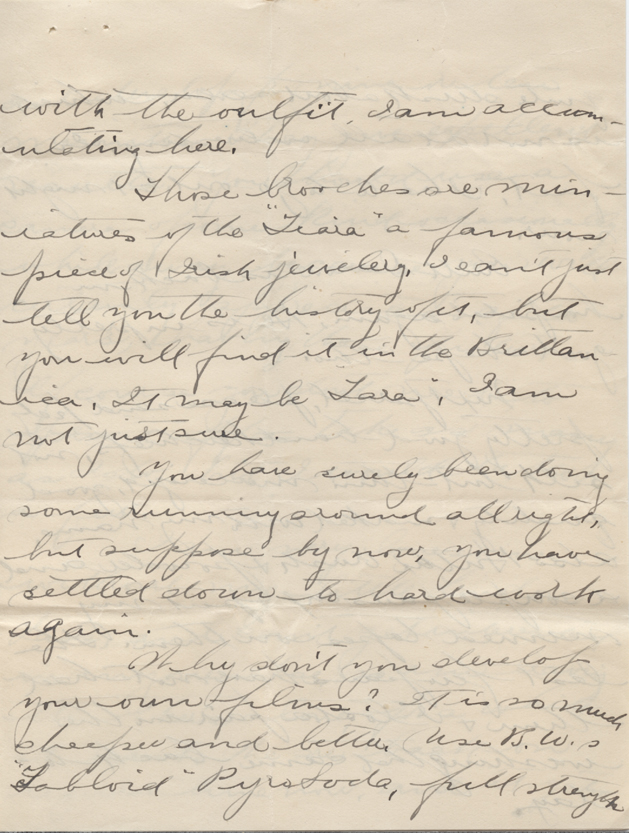 with the outfit, I am accum-
ulating here.
Those brooches are min-
iatures of the "Tiara" a famous
piece of Irish jewelery. I can't just
tell you the history of it, but
you will find it in the Brittan
ica. It may be "Tara", I am
not just sure.
You have surely been doing
some running around all right,
but suppose by now, you have
settled down to hard work
again.
Why don't you develop
your own films? It is so much
cheeper and better. Use B.W.s
"Tabloid" Pyro Soda, full strength